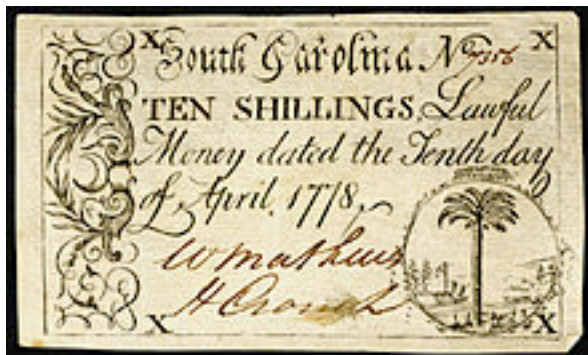 X South Carolina. No 7356 X
TEN SHILLINGS, Lawful
Money dated the Tenth day
of, April, 1778,
W Mathews
H Crouch
X X